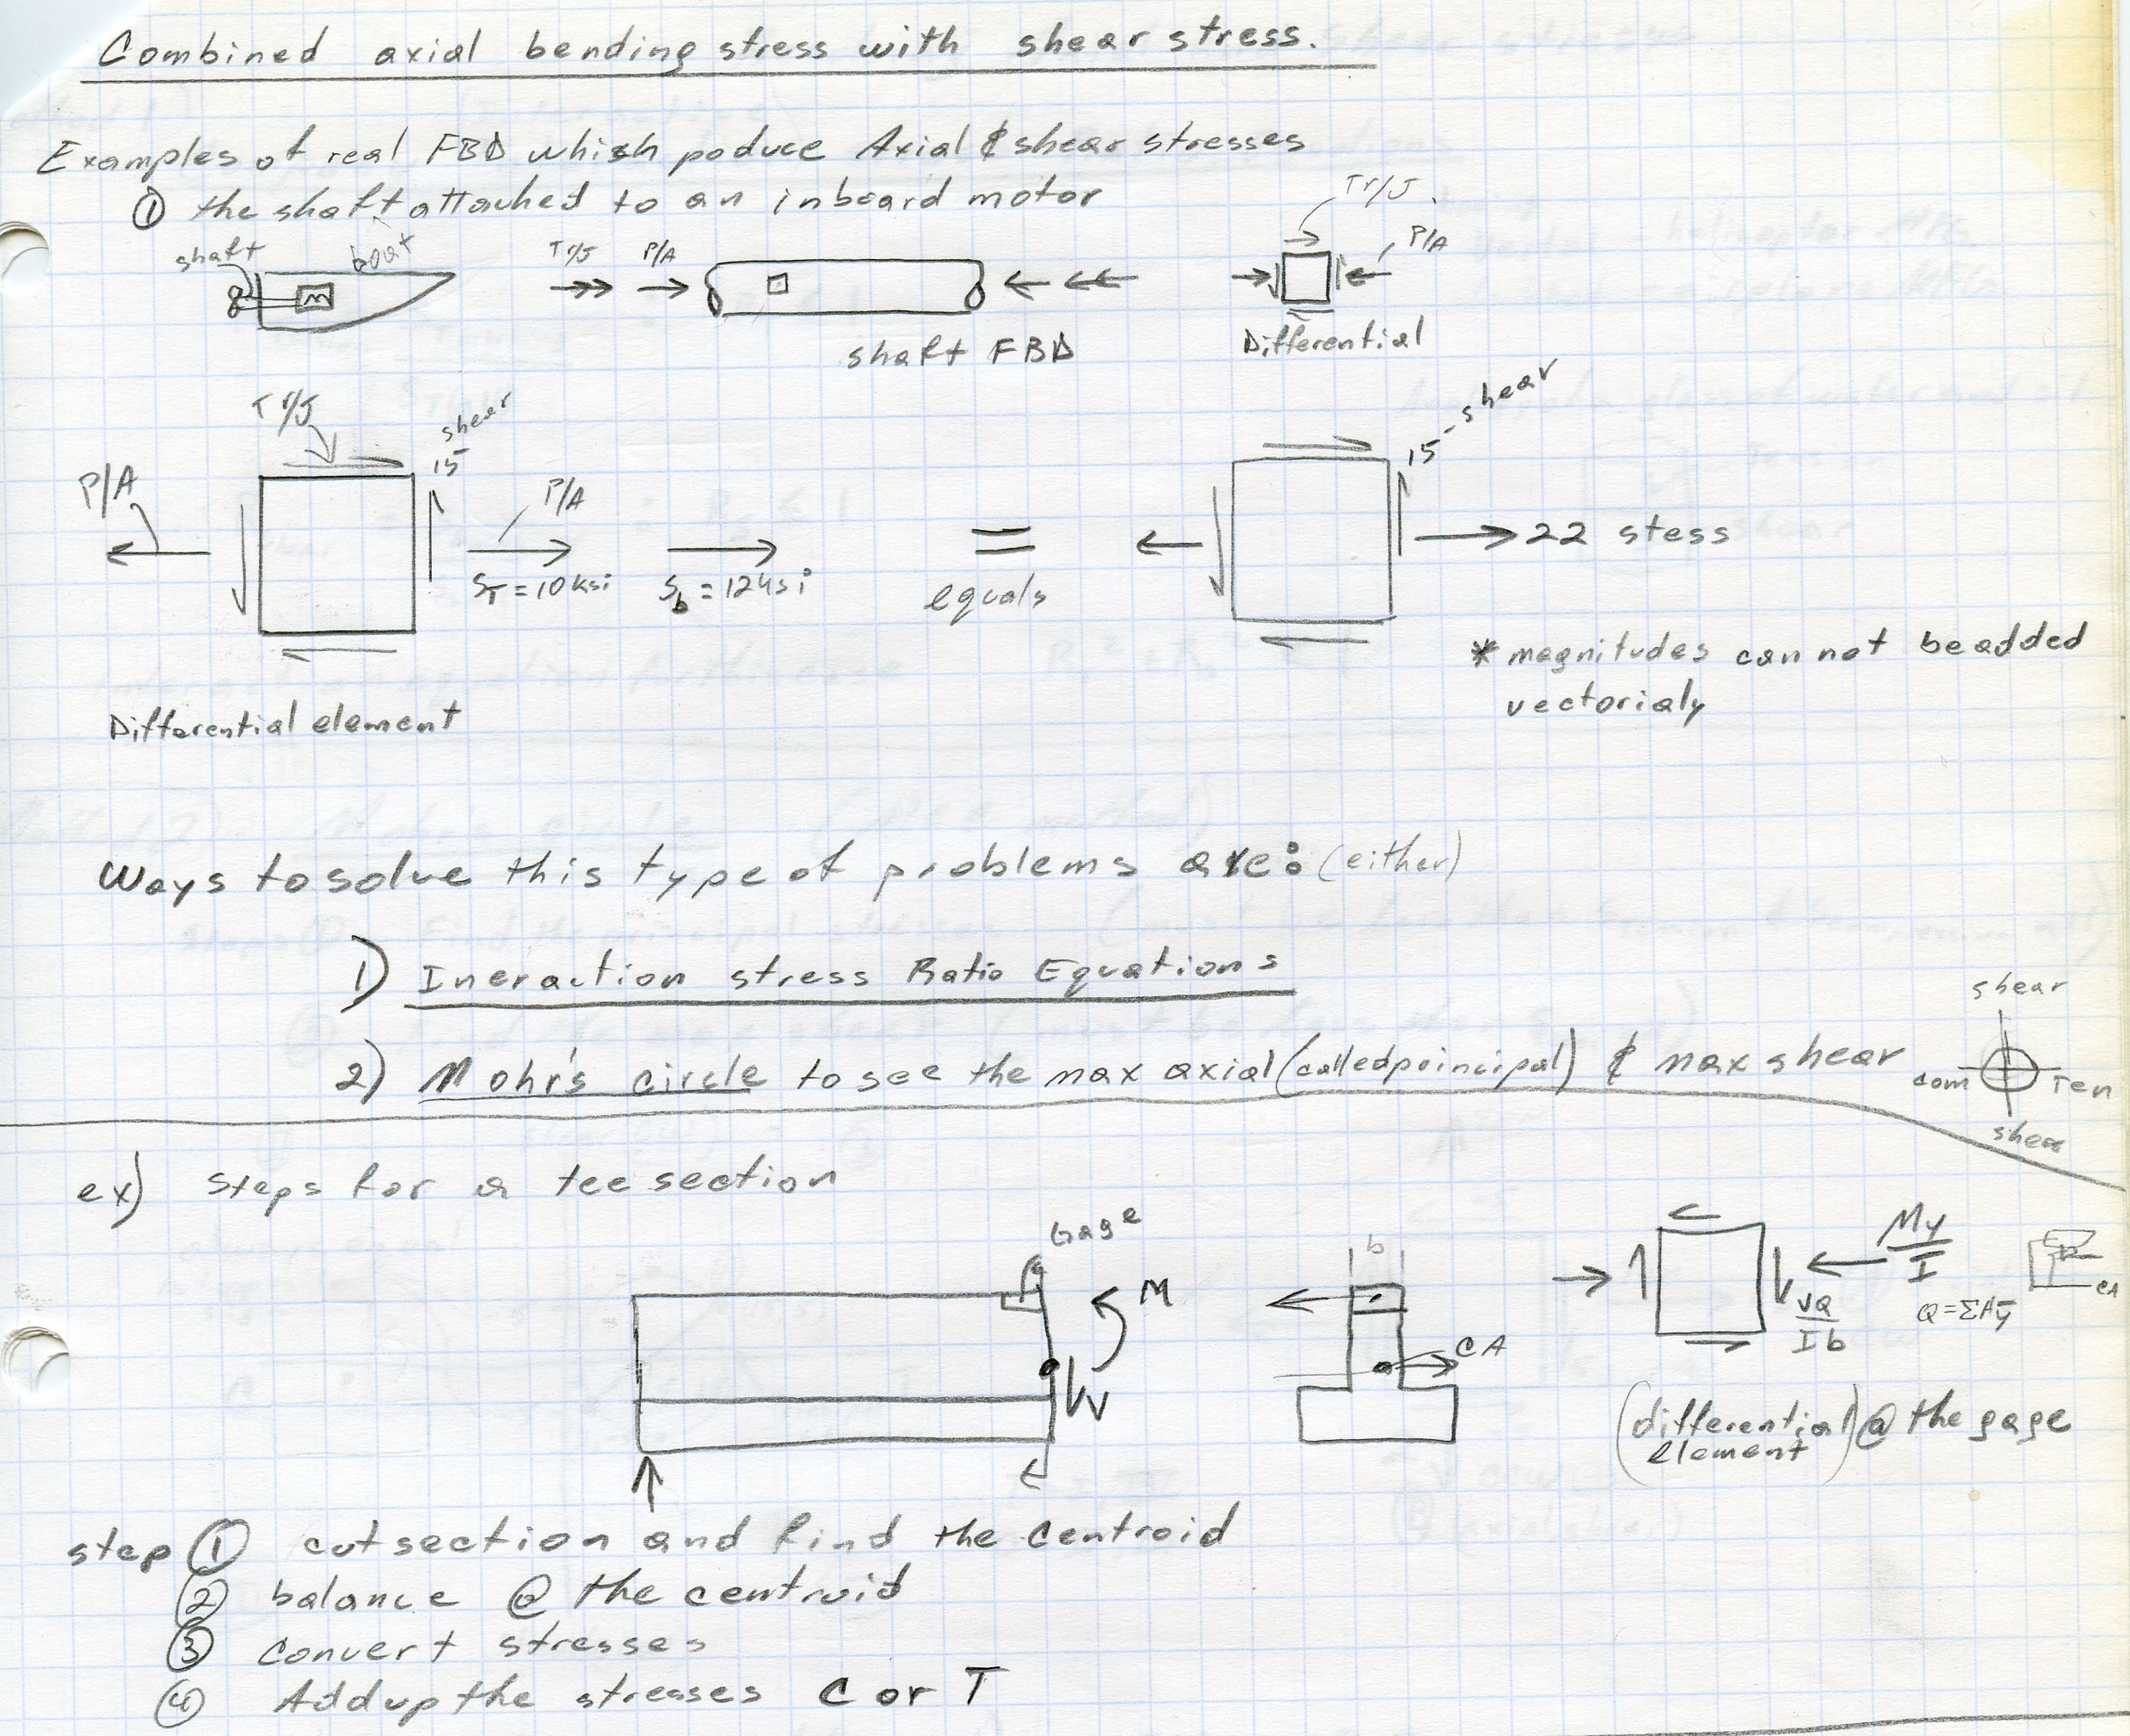 Combined axial bending stress with shear stress.
Examples of real FBD which poduce Axial & shear stresses
① the shaft attached to an inboard motor
shaft
boat
M
Tr/J
P/A
shaft FBD
Tr/J
P/A
Differential
Tr/J
shear
15
P/A
P/A
ST = 10 ksi
Sb = 12 ksi
=
equals
15 - shear
22 stess
* magnitudes can not be added
vectorialy
Differential element
Ways to solve this type of problems are: (either)
1) Ineraction stress Ratio Equations
2) Mohr's circle to see the max axial (called principal) & max shear
shear
com
Ten
shear
ex) steps for a tee section
Gage
M
V
b
CA
My/I
VQ/Ib
Q = ΣAȳ
CA
(differential element) @ the gage
step ① cut section and find the centroid
② balance @ the centroid
③ convert stresses
④ Add up the stresses C or T